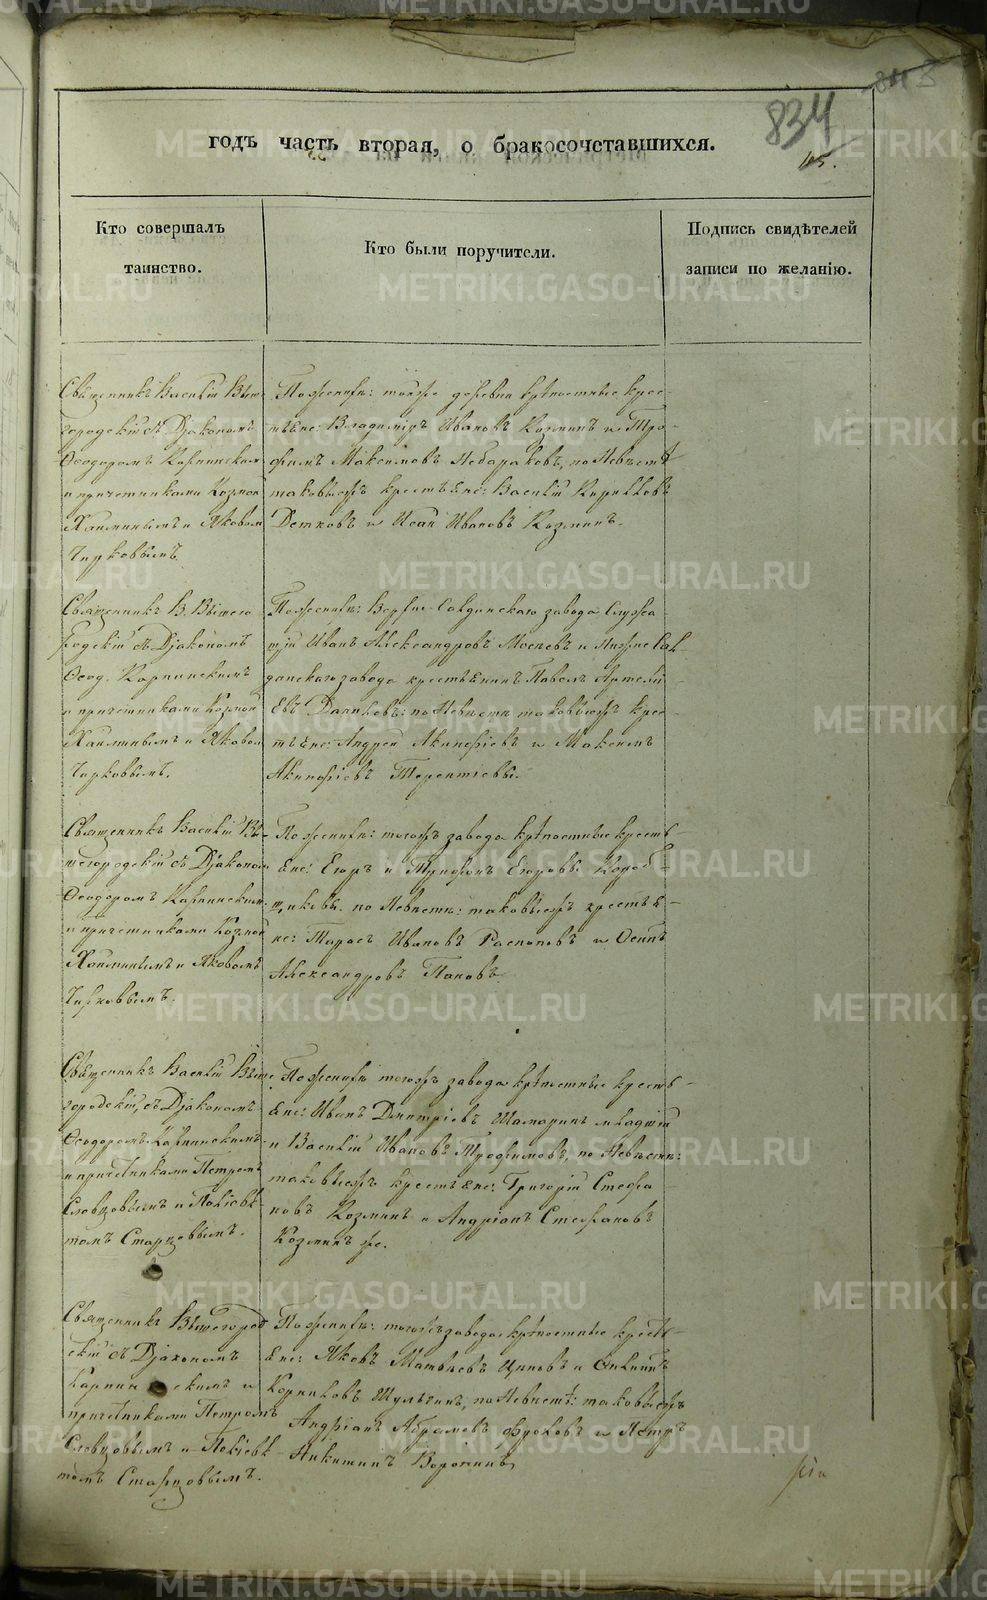 834
годъ часть вторая, о бракосочетавшихся.
115.
Кто совершалъ
таинство.
Кто были поручители.
Подпись свидѣтелей
записи по желанію.
Священникъ Василій Выше
городскій съ Діакономъ
Ѳеодоромъ Карпинскимъ
и причетниками Козмой
и Яковомъ
Чирковымъ.
По женихѣ: тойже деревни крѣпостные крес-
тьяне: Владиміръ Ивановъ Козминъ и Тро-
фимъ Максимовъ по Невѣстѣ
таковыежъ крестьяне: Василій Кирилловъ
Детковъ и Исай Ивановъ Козминъ.
Священникъ В. Вышего
родскій съ Діакономъ
Ѳеод. Карпинскимъ
и причетниками Козмой
и Яковом
Чирковымъ.
По женихѣ: Верхне-Салдинскаго завода Служа-
щій Иванъ Александровъ и Нижне Сал-
динскаго завода крестьянинъ Павелъ
Даниловъ: по Невѣстѣ таковыежъ крес-
тьяне: Андрей Акинфіевъ и Максимъ
Акинфіевъ Терентіевы.
Священникъ Василій Вы-
шегородскій съ Діаконом
Ѳеодоромъ Карпинскимъ
и причетниками Козмой
и Яковомъ
Чирковымъ.
По женихѣ: тогожъ завода крѣпостные кресть-
яне: Егоръ и Трифонъ Егоровы Короб-
щиковы. по Невѣстѣ: таковыежъ крестья-
не: Тарасъ Ивановъ Распоповъ и Осипъ
Александровъ Поповъ.
Священникъ Василій Выше
городскій, съ Діакономъ
Ѳеодоромъ Карпинскимъ
и причетниками Петромъ
Словцовымъ и Поліевк-
томъ Старцовымъ.
По женихѣ тогожъ завода крѣпостные кресть-
яне: Иванъ Дмитріевъ Шамаринъ младшій
и Василій Ивановъ Трофимовъ, по Невѣстѣ:
таковыежъ крестьяне: Григорій Стефа-
новъ Козминъ и Андріанъ Стефановъ
Козминъ же.
Священникъ Вышегород
скій съ Діакономъ
Карпинскимъ и
причетниками Петромъ
Словцовымъ и Поліевк-
томъ Старцовымъ.
По женихѣ: тогожъ завода крѣпостные кресть-
яне: Яковъ Матвѣевъ и
Корниловъ Шульгинъ, по Невѣстѣ: таковыежъ
Андріанъ Абрамовъ Фроловъ и Петръ
Никитинъ Воронинъ
METRIKI.GASO-URAL.RU